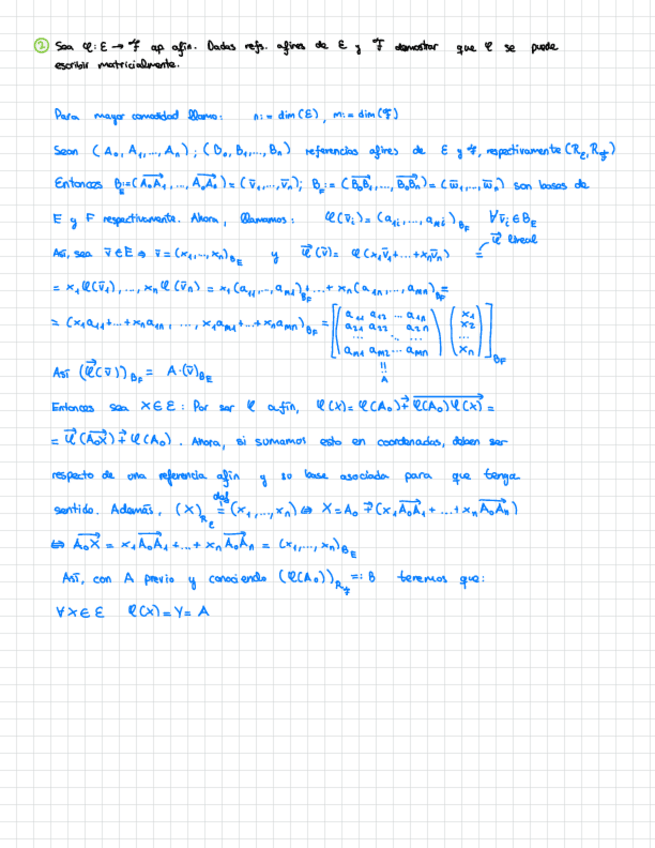 ② Sea φ: E → F ap. afín. Dadas refs. afines de E y F demostrar que φ se puede
escribir matricialmente.
Para mayor comodidad llamo: n:= dim(E), m:= dim(F)
Sean (A₀, A₁, ..., Aₙ); (B₀, B₁, ..., Bₙ) referencias afines de E y F, respectivamente (R_E, R_F)
Entonces B_E:=(A₀A₁→, ..., A₀Aₙ→) = (v̄₁, ..., v̄ₙ); B_F:= (B₀B₁→, ..., B₀Bₙ→) = (w̄₁, ..., w̄ₙ) son bases de
E y F respectivamente. Ahora, llamamos: φ(v̄ᵢ) = (a₁ᵢ, ..., aₘᵢ)_B_F ∀v̄ᵢ ∈ B_E
Así, sea v̄ ∈ E ⇒ v̄ = (x₁, ..., xₙ)_B_E y φ→(v̄) = φ(x₁v̄₁ + ... + xₙv̄ₙ) = φ→ lineal
= x₁φ(v̄₁), ..., xₙφ(v̄ₙ) = x₁(a₁₁, ..., aₘ₁)_B_F + ... + xₙ(a₁ₙ, ..., aₘₙ)_B_F =
= (x₁a₁₁ + ... + xₙa₁ₙ, ..., x₁aₘ₁ + ... + xₙaₘₙ)_B_F = [(a₁₁ a₁₂ ... a₁ₙ) (x₁)
a₂₁ a₂₂ ... a₂ₙ x₂
... ... ...
aₘ₁ aₘ₂ ... aₘₙ xₙ]_B_F
=
A
Así (φ→(v̄))_B_F = A·(v̄)_B_E
Entonces sea X ∈ E: Por ser φ afín, φ(X) = φ(A₀) +→ φ(A₀)φ(X)→ =
= φ→(A₀X→) +→ φ(A₀). Ahora, si sumamos esto en coordenadas, deben ser
respecto de una referencia afín y su base asociada para que tenga
sentido. Además, (X)_R_E =def (x₁, ..., xₙ) ⇔ X = A₀ +→ (x₁A₀A₁→ + ... + xₙA₀Aₙ→)
⇔ A₀X→ = x₁A₀A₁→ + ... + xₙA₀Aₙ→ = (x₁, ..., xₙ)_B_E
Así, con A previo y conociendo (φ(A₀))_R_F =: B tenemos que:
∀X ∈ E φ(X) = Y = A